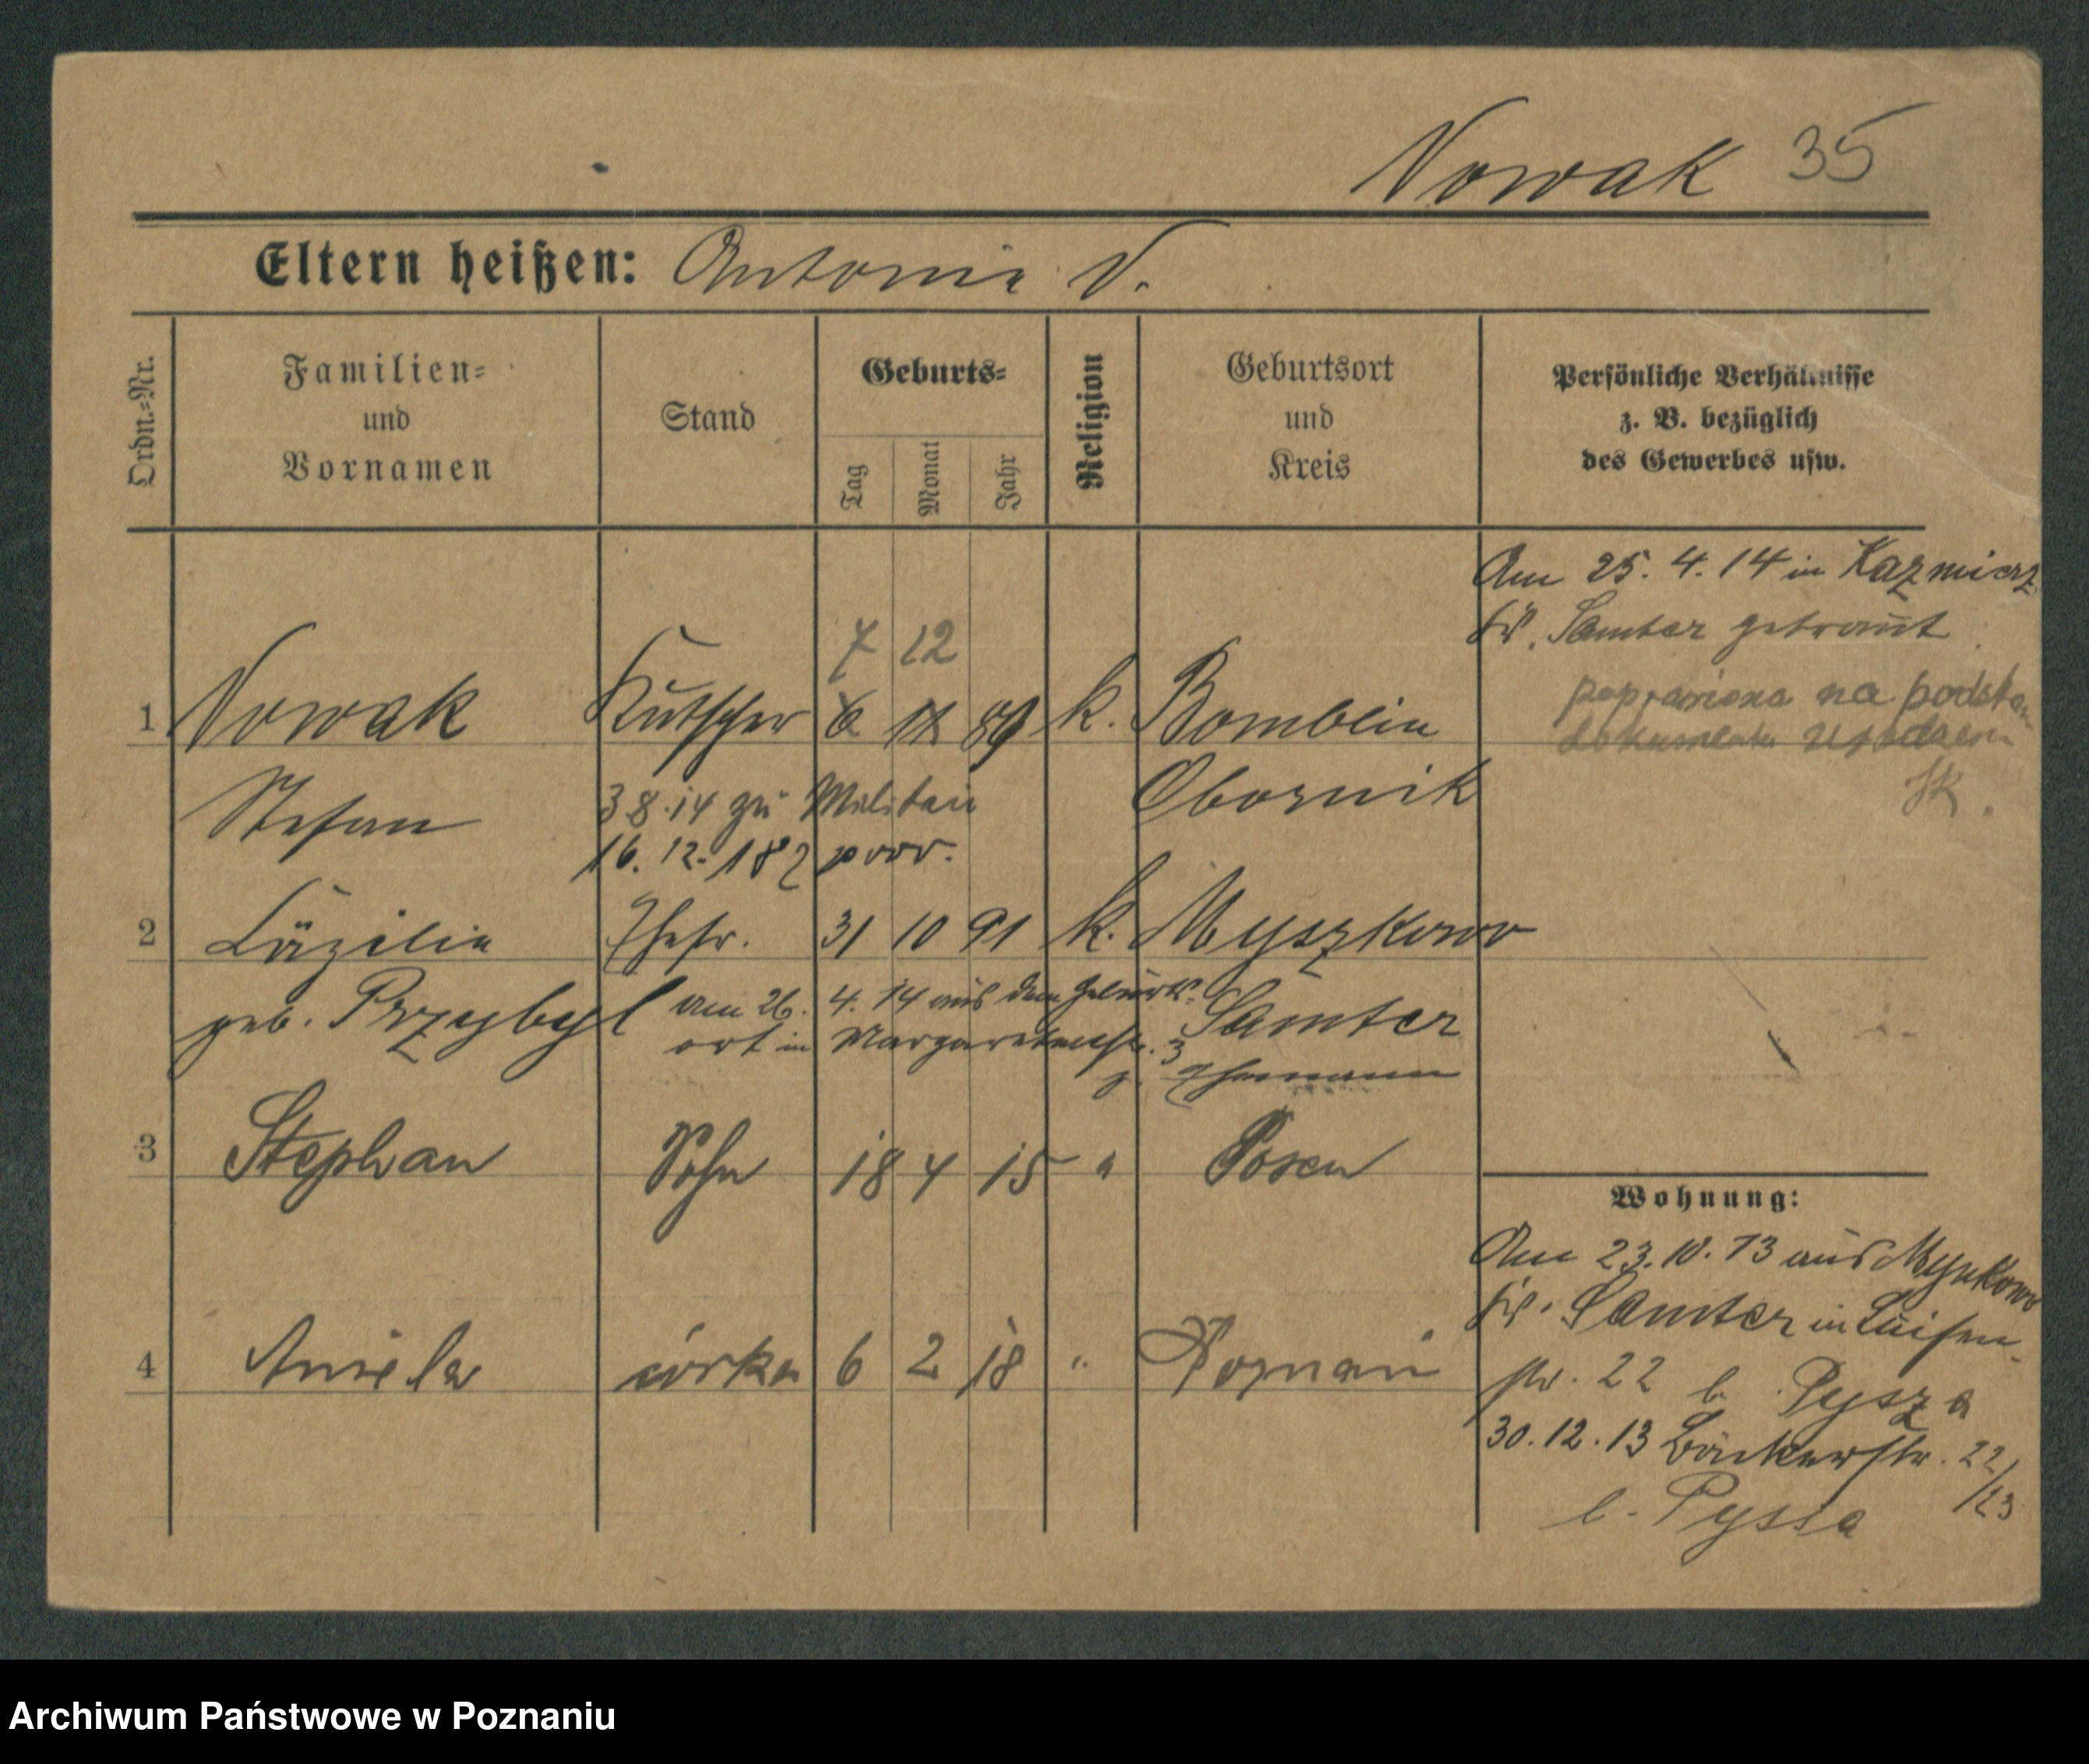 Nowak 35
Eltern heißen: Antonie V.
Ordn.=Nr.
Familien=
und
Vornamen
Stand
Geburts=
Tag
Monat
Jahr
Religion
Geburtsort
und
Kreis
Persönliche Verhältnisse
z. B. bezüglich
des Gewerbes usw.
Am 25. 4. 14 in Kazmierz
Kr. Samter getraut
poprawiona na podstaw
dokumentu
7 12
1 Nowak Kutscher 6 11 89 k. Bomblin
Stefan 3 8. 14 zu Militair Obornik
16. 12. 18
2 Cäzilie Ehefr. 31 10 91 k. Myszkowo
geb. Przybyl am 26. 4. 14 aus dem Geburts= Samter
ort in Margaretenstr. 3
z. Ehemann
3 Stephan Sohn 18 4 15 " Posen
4 Aniela córka 6 2 18 " Poznań
Wohnung:
Am 23. 10. 13 aus Myszkowo
Kr. Samter in Luisen
str. 22 b. Pysza
30. 12. 13 Bäckerstr. 22/23
b. Pyssa
Archiwum Państwowe w Poznaniu